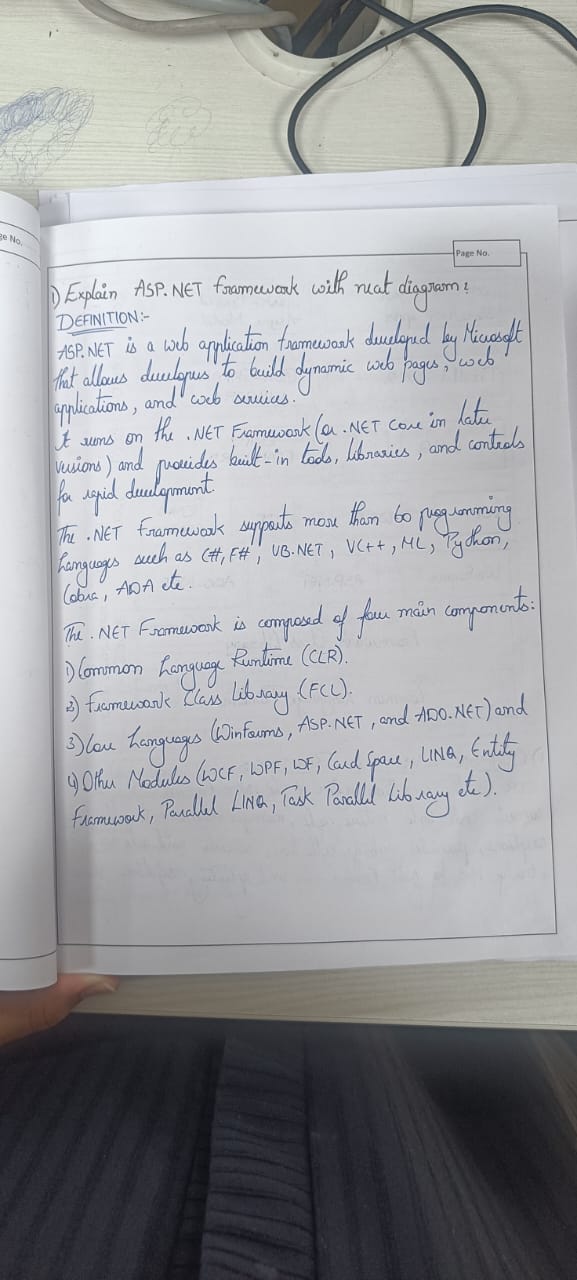 ge No.
Page No.
1) Explain ASP.NET framework with neat diagram?
DEFINITION:-
ASP.NET is a web application framework developed by Microsoft
that allows developers to build dynamic web pages, web
applications, and web services.
It runs on the .NET Framework (or .NET Core in later
versions) and provides built-in tools, libraries, and controls
for rapid development.
The .NET Framework supports more than 60 programming
Languages such as C#, F#, VB.NET, VC++, ML, Python,
Cobra, ADA etc.
The .NET Framework is composed of four main components:
1) Common Language Runtime (CLR).
2) Framework Class Library (FCL).
3) Core Languages (Winforms, ASP.NET, and ADO.NET) and
4) Other Modules (WCF, WPF, WF, Card Space, LINQ, Entity
Framework, Parallel LINQ, Task Parallel Library etc).